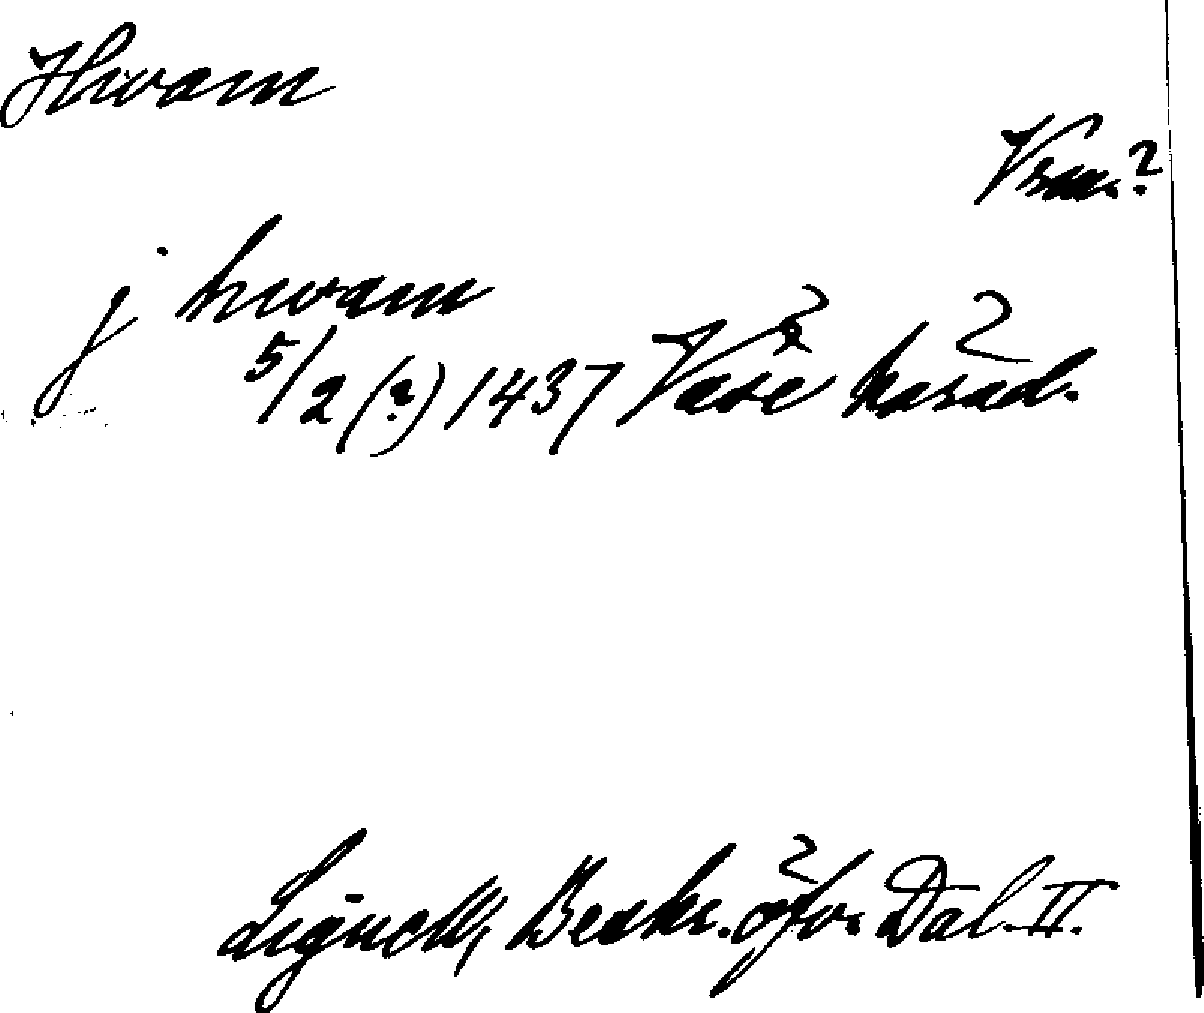 Hwam
Vrm.?
j hwam
5/2 (?) 1437 Vase härad.
Lignell, Beskr. öfv. Dal II.